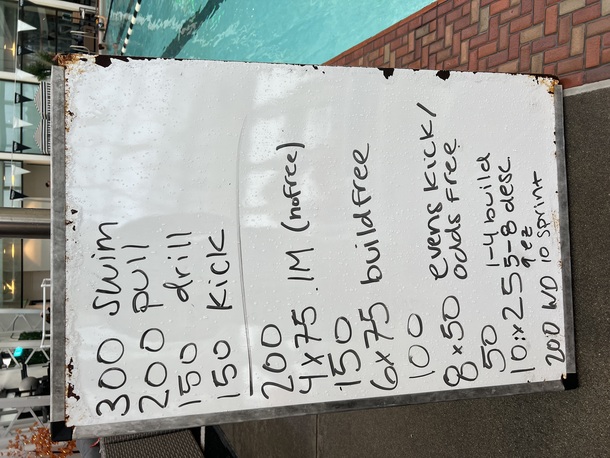 300 swim
200 pull
150 drill
150 kick
200
4x75 IM (no free)
150
6x75 build free
100
8x50 evens kick/
odds free
50
10x25 1-4 build
5-8 desc
9 ez
200 WD 10 sprint